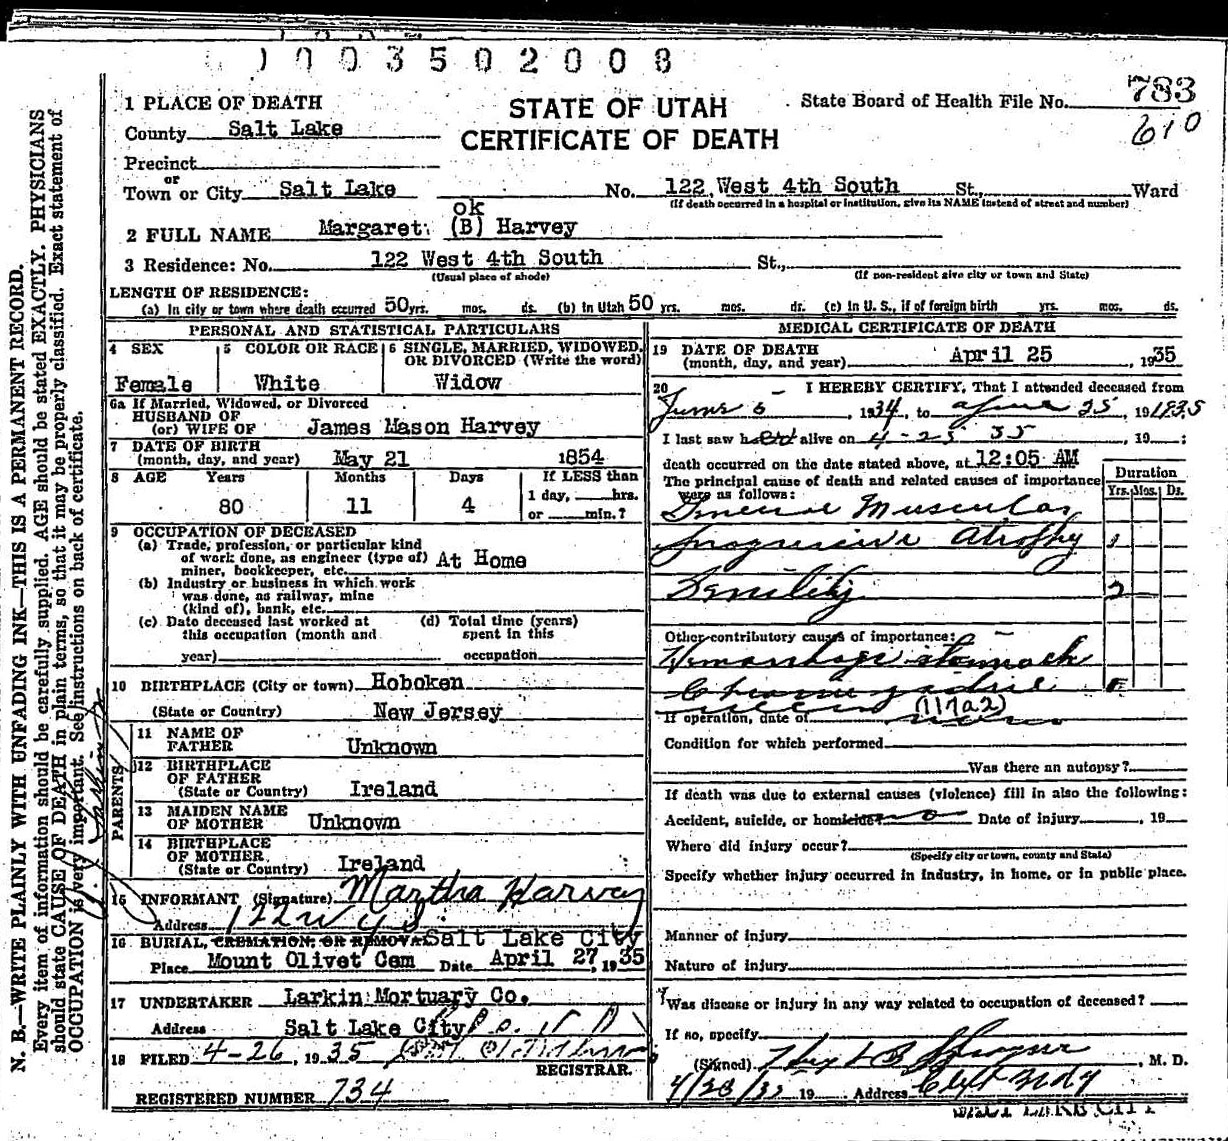 1003502008
1 PLACE OF DEATH
STATE OF UTAH
CERTIFICATE OF DEATH
State Board of Health File No. 783
610
County Salt Lake
Precinct
or
Town or City Salt Lake No. 122 West 4th South St., Ward
(If death occurred in a hospital or institution, give its NAME instead of street and number)
ok
2 FULL NAME Margaret (B) Harvey
3 Residence: No. 122 West 4th South St.,
(Usual place of abode) (If non-resident give city or town and State)
LENGTH OF RESIDENCE:
(a) In city or town where death occurred 50 yrs. mos. ds. (b) In Utah 50 yrs. mos. ds. (c) In U. S., if of foreign birth yrs. mos. ds.
PERSONAL AND STATISTICAL PARTICULARS
4 SEX
Female
5 COLOR OR RACE
White
6 SINGLE, MARRIED, WIDOWED, OR DIVORCED (Write the word)
Widow
6a If Married, Widowed, or Divorced
HUSBAND OF
(or) WIFE OF James Mason Harvey
7 DATE OF BIRTH
(month, day, and year) May 21 1854
8 AGE Years Months Days If LESS than
1 day, hrs.
80 11 4 or min.?
9 OCCUPATION OF DECEASED
(a) Trade, profession, or particular kind
of work done, as engineer (type of)
miner, bookkeeper, etc. At Home
(b) Industry or business in which work
was done, as railway, mine
(kind of), bank, etc.
(c) Date deceased last worked at
this occupation (month and
year)
(d) Total time (years)
spent in this
occupation
10 BIRTHPLACE (City or town) Hoboken
(State or Country) New Jersey
PARENTS
11 NAME OF
FATHER Unknown
12 BIRTHPLACE
OF FATHER
(State or Country) Ireland
13 MAIDEN NAME
OF MOTHER Unknown
14 BIRTHPLACE
OF MOTHER
(State or Country) Ireland
15 INFORMANT (Signature) Martha Harvey
Address 122 W 4 S.
16 BURIAL, CREMATION, OR REMOVAL Salt Lake City
Place Mount Olivet Cem Date April 27, 1935
17 UNDERTAKER Larkin Mortuary Co.
Address Salt Lake City
18 FILED 4-26, 1935
REGISTRAR.
REGISTERED NUMBER 734
MEDICAL CERTIFICATE OF DEATH
19 DATE OF DEATH
(month, day, and year) April 25 1935
20 I HEREBY CERTIFY, That I attended deceased from
June 5 1934, to April 25, 191935
I last saw her alive on 4-25 35, 19 ;
death occurred on the date stated above, at 12:05 AM
The principal cause of death and related causes of importance
were as follows:
Duration
Yrs. Mos. Ds.
General Muscular
progressive Atrophy
Senility
Other contributory causes of importance:
Hemorrhage stomach
Chronic
(117a2)
If operation, date of
Condition for which performed
Was there an autopsy?
If death was due to external causes (violence) fill in also the following:
Accident, suicide, or homicide? Date of injury , 19
Where did injury occur?
(Specify city or town, county and State)
Specify whether injury occurred in industry, in home, or in public place.
Manner of injury
Nature of injury
Was disease or injury in any way related to occupation of deceased?
If so, specify
(Signed) , M. D.
19 Address Clift Bldg
SALT LAKE CITY
N. B.—WRITE PLAINLY WITH UNFADING INK—THIS IS A PERMANENT RECORD.
Every item of information should be carefully supplied. AGE should be stated EXACTLY. PHYSICIANS
should state CAUSE OF DEATH in plain terms, so that it may be properly classified. Exact statement of
OCCUPATION is very important. See instructions on back of certificate.